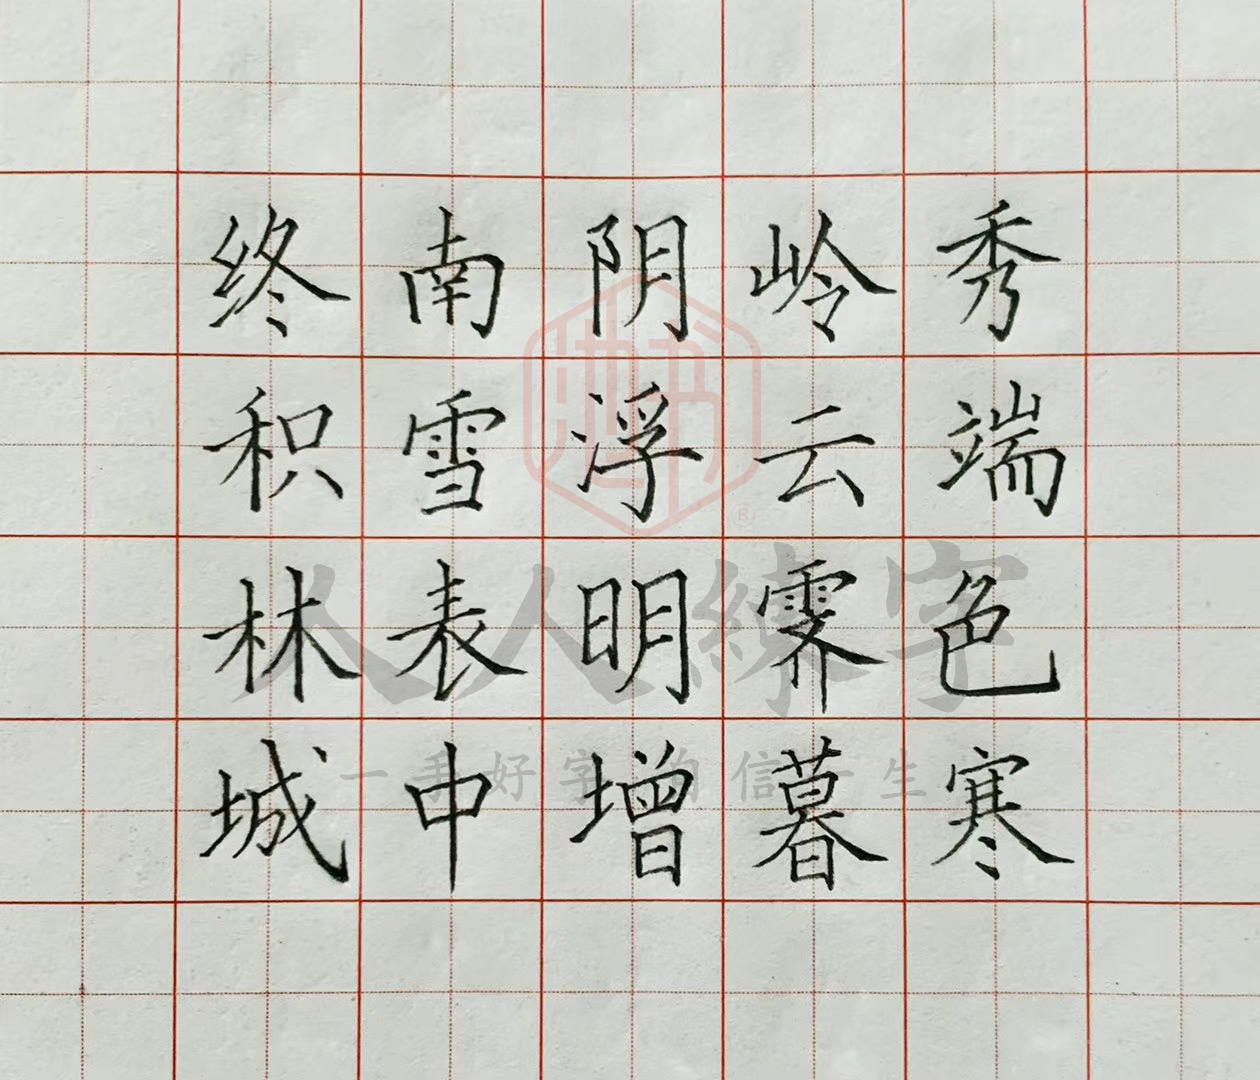 终南阴岭秀
积雪浮云端
林表明霁色
城中增暮寒
人人練字
一手好字 的信 生